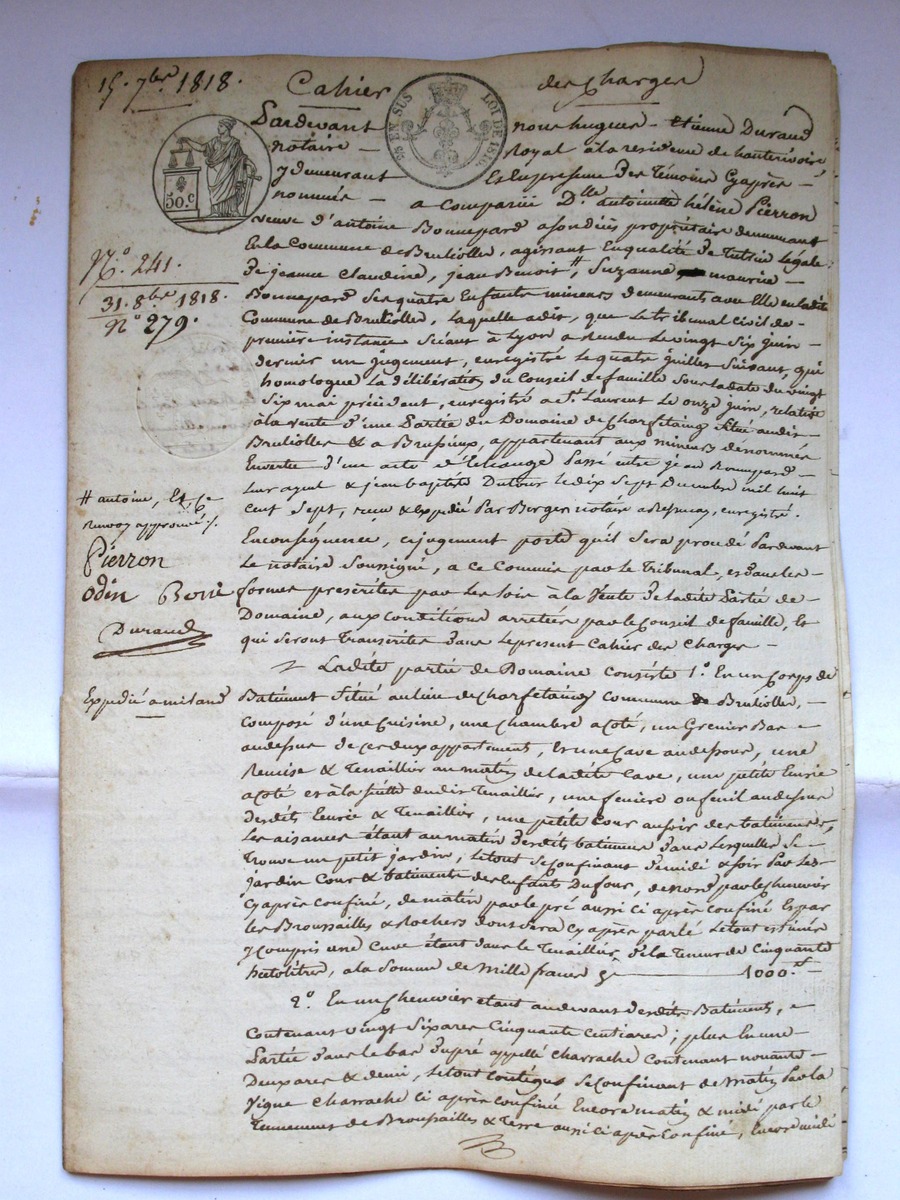 15. 7bre 1818.
Cahier des Charges
25 EN SUS LOI DE 1816.
50.c
Pardevant nous hugues - Etienne Durand
notaire - Royal a la residence de hauterivoire
y demeurant Et en presence des Temoins Cy après -
nommés - a comparüe D.lle antoinette hélène Pierron
veuve d'antoine Bonnepard propriétaire demeurant
En la Commune de Brullolles, agissant En qualité de Tutrice Légale
De jeanne Claudine, jean Benoit #, Suzanne maurice -
Bonnepard Ses quatre Enfants mineurs demeurants avec Elle en ladite
Commune de Brullolles, laquelle a dit, que le tribunal civil de
première instance Séant à Lyon a Rendu le vingt Six juin -
dernier un jugement, enregistré le quatre juillet Suivant, qui
homologue la délibération du Conseil de famille sous la date du vingt
Six mai précédent, enregistré a St. Laurent le onze juin, relative
à la vente d'une Partie du Domaine de Charfetaing Situé audit
Brullolles & a Brussieux, appartenant aux mineurs dénommés
En vertu d'un acte d'Echange Passé entre jean Bonnepard -
& jean baptiste Dufour le dix Sept Decembre mil huit
cent Sept, recu & expedié Par Berger notaire a Bessenay, enregistré.
En conséquence, ce jugement porte qu'il Sera procedé Pardevant
le notaire Soussigné, a ce Commis par le Tribunal, et dans les -
formes prescrites par les lois à la Vente de ladite Partie de -
Domaine, aux conditions arretées par le Conseil de famille, Et
qui Seront Transcrites dans le present Cahier des Charges -
Ladite partie de Domaine consiste 1.° En un Corps de
Batiment Situé au lieu de Charfetaing commune de Brullolles, -
composé d'une Cuisine, une chambre a coté, un Grenier Bas -
au dessus de ces deux appartement, Et une Cave au dessous, une
Remise & Tenaillier au matin de ladite Cave, une petite Ecurie
a coté et à la suitte dudit Tenaillier, une feniere ou feuil au dessus
desdits Ecurie & Tenaillier, une petite Cour au soir des batiments,
Les aisances étant au matin desdits batimens dans Lesquelles Se -
Trouve un petit jardin, le tout Se Confinant de midi & soir Par les
jardin Cour & batiments des Enfants Dufour, de nord par le Chenevier
Cy après Confiné, de matin par le pré aussi ci après Confiné Et par
les Broussailles & Rochers dont sera Cy après parlé Le tout estimé
y Compris une Cuve étant dans le Tenaillier, de la Teneur de Cinquante
hectolitres, a la Somme de Mille francs 1000.f -
2.° En un Chenevier étant au devant desdits Batiments, -
Contenant vingt Six ares Cinquante Centiares; plus En une -
Partie dans le bas du pré appellé charrache Contenant nonante -
Deux ares & demi, Le tout contigus Se Confinant de matin Par la
Vigne Charrache ci après confinée Encore matin & midi par le
Tennement de Broussailles & Terre aussi Ci après Confiné, Encore midi
N.° 241.
31. 8bre 1818.
N° 279.
# antoine, Et Ce
Renvoy approuvé
Pierron
Odin
Durand
Expedié a milan